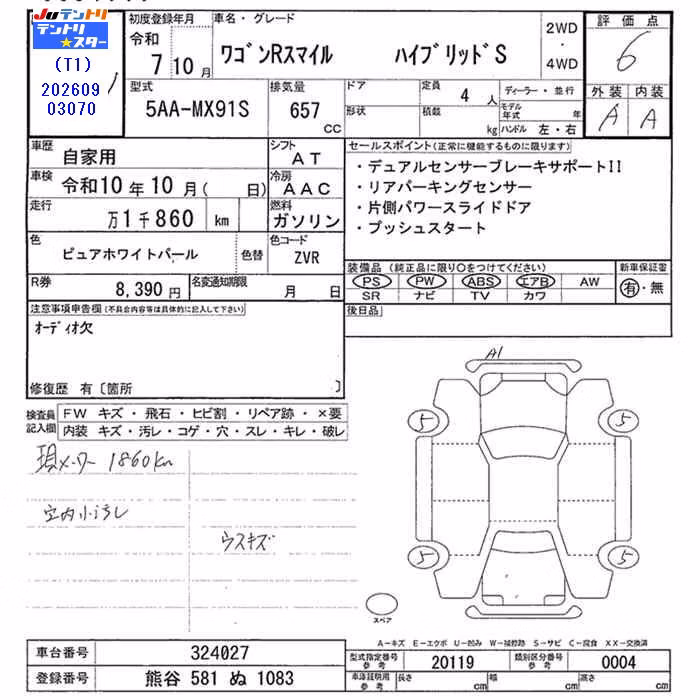 Juテントリ
テントリ★スター
(T1)
202609
03070
初度登録年月
令和
7年10月
車名・グレード
ワゴンRスマイル ハイブリッドS
2WD
・
4WD
評価点
6
外装 内装
A A
型式
5AA-MX91S
排気量
657
CC
ドア
形状
定員
4 人
積載
kg
ディーラー・並行
モデル年式 年
ハンドル 左・右
車歴
自家用
シフト
AT
車検
令和10年10月( 日)
冷房
AAC
走行
万1千860 km
燃料
ガソリン
色
ピュアホワイトパール
色替
色コード
ZVR
R券
8,390円
名変通知期限
月 日
セールスポイント(正常に機能するものに限ります)
・デュアルセンサーブレーキサポートII
・リアパーキングセンサー
・片側パワースライドドア
・プッシュスタート
装備品(純正品に限り○をつけてください)
PS PW ABS エアB AW
SR ナビ TV カワ
新車保証書
有・無
後日品
注意事項申告欄(不具合内容等は具体的に記入して下さい)
オーディオ欠
修復歴 有〔箇所 〕
検査員記入欄
FW キズ・飛石・ヒビ割・リペア跡・×要
内装 キズ・汚レ・コゲ・穴・スレ・キレ・破レ
現メーター 1860km
室内小汚レ
ウスキズ
A1
5 5
5 5
スペア
A-キズ E-エクボ U-凹み W-補修跡 S-サビ C-腐食 XX-交換済
車台番号
324027
登録番号
熊谷 581 ぬ 1083
型式指定番号
参考
20119
類別区分番号
参考
0004
車庫証明用
参考
長さ cm
幅 cm
高さ cm